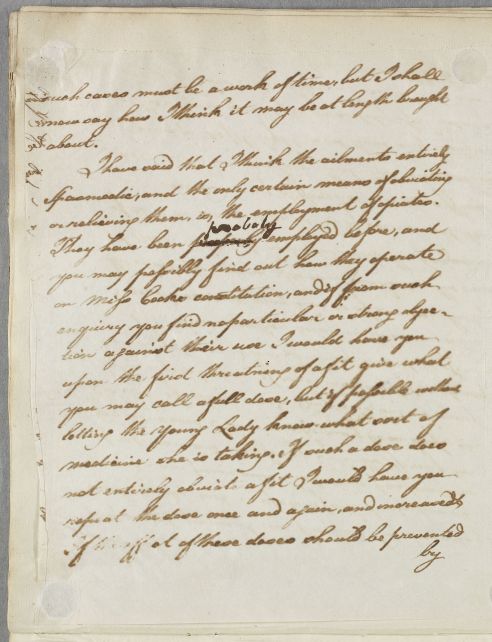 such cases must be a work of time, but I shall
now say how I think it may be at length brought
about.
I have said that I think the ailments entirely
Spasmodic, and the only certain means of obviating
or relieving them, is, the employment of opiates.
probably
They have been employed before, and
you may possibly find out how they operate
on Miss Cooks constitution, and if from such
enquiry you find no particular or strong objec-
tion against their use I would have you
upon the first threatning of a fit give what
you may call a full dose, but if possible without
letting the Young Lady know what sort of
medicine she is taking. If such a dose does
not entirely obviate a fit I would have you
repeat the dose once and again, and increased
If the effect of these doses should be prevented
by